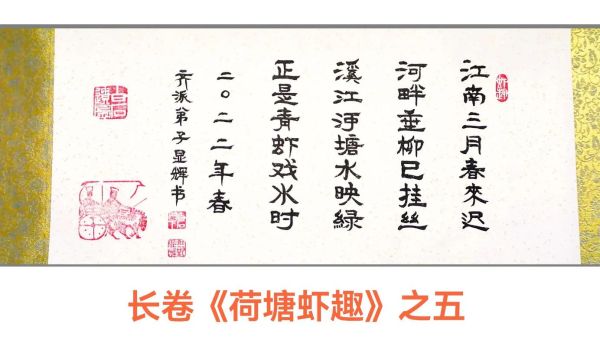 江南三月春來迟
河畔垂柳已挂丝
溪江浮塘水映緑
正是青虾戏水时
二〇二二年春
齐派弟子显辉书
长卷《荷塘虾趣》之五